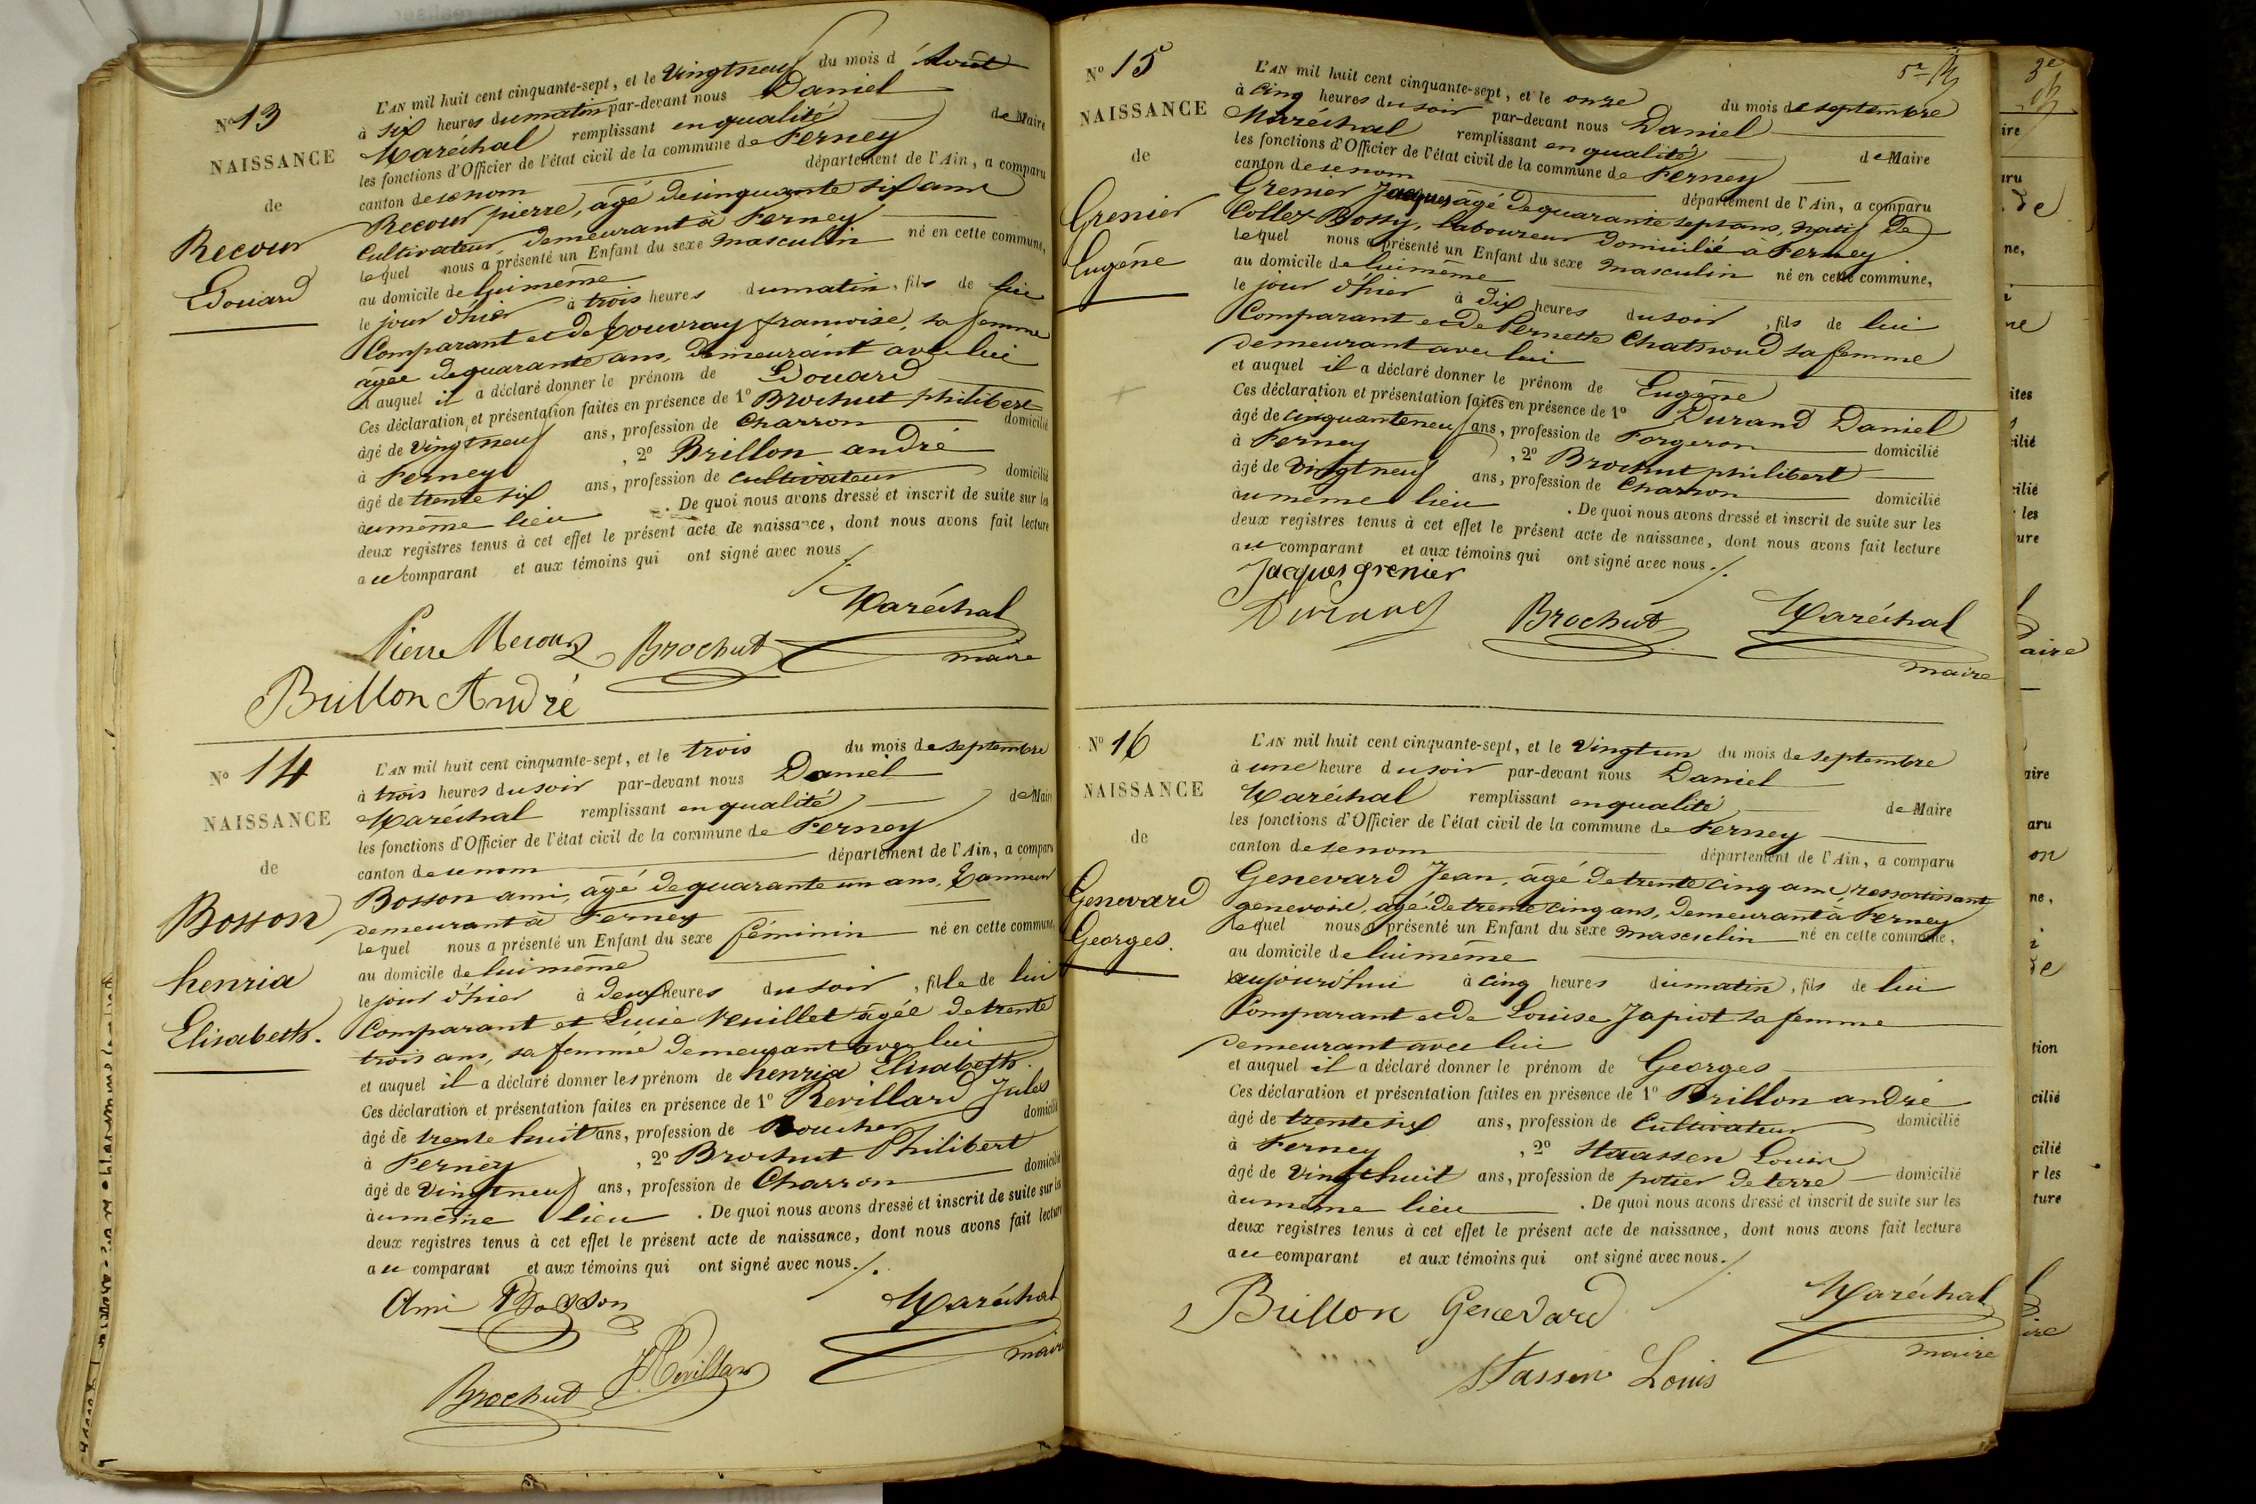 N° 13
NAISSANCE
de
Recour
Edouard
L'AN mil huit cent cinquante-sept, et le Vingtneuf du mois d'Août
à six heures du matin par-devant nous Daniel
Maréchal remplissant en qualité de Maire
les fonctions d'Officier de l'état civil de la commune de Ferney
canton de ce nom département de l'Ain, a comparu
Recour pierre, âgé de cinquante six ans
Cultivateur demeurant à Ferney
lequel nous a présenté un Enfant du sexe masculin né en cette commune,
au domicile de lui même
le jour d'hier à trois heures du matin, fils de lui
Comparant et de Louvray francoise, sa femme
âgée de quarante ans, demeurant avec lui
et auquel il a déclaré donner le prénom de Edouard
Ces déclaration et présentation faites en présence de 1° Brochut philibert
âgé de Vingtneuf ans, profession de Charron domicilié
à Ferney, 2° Brillon andré
âgé de trente six ans, profession de Cultivateur domicilié
au même lieu. De quoi nous avons dressé et inscrit de suite sur les
deux registres tenus à cet effet le présent acte de naissance, dont nous avons fait lecture
au comparant et aux témoins qui ont signé avec nous
Maréchal
Pierre Brochut maire
Brillon André
N° 14
NAISSANCE
de
Bosson
henria
Elisabeth.
L'AN mil huit cent cinquante-sept, et le trois du mois de septembre
à trois heures du soir par-devant nous Daniel
Maréchal remplissant en qualité de Maire
les fonctions d'Officier de l'état civil de la commune de Ferney
canton de ce nom département de l'Ain, a comparu
Bosson ami, âgé de quarante un ans, Tanneur
demeurant à Ferney
lequel nous a présenté un Enfant du sexe féminin né en cette commune,
au domicile de lui même
le jour d'hier à deux heures du soir, fille de lui
Comparant et Lucie Veuillet âgée de trente
trois ans, sa femme demeurant avec lui
et auquel il a déclaré donner les prénom de henria Elisabeth.
Ces déclaration et présentation faites en présence de 1° Revillard Jules
âgé de trente huit ans, profession de Boucher domicilié
à Ferney, 2° Brochut Philibert
âgé de Vingtneuf ans, profession de Charron domicilié
au même lieu. De quoi nous avons dressé et inscrit de suite sur les
deux registres tenus à cet effet le présent acte de naissance, dont nous avons fait lecture
au comparant et aux témoins qui ont signé avec nous.
Ami Bosson Maréchal
maire
Brochut JRevillard
N° 15
NAISSANCE
de
Grenier
Eugéne
L'AN mil huit cent cinquante-sept, et le onze du mois de septembre
à cinq heures du soir par-devant nous Daniel
Maréchal remplissant en qualité de Maire
les fonctions d'Officier de l'état civil de la commune de Ferney
canton de ce nom département de l'Ain, a comparu
Grenier Jacques âgé de quarante sept ans, natif de
Collex Bossy, laboureur domicilié à Ferney
lequel nous a présenté un Enfant du sexe masculin né en cette commune,
au domicile de lui même
le jour d'hier à dix heures du soir, fils de lui
Comparant et de Pernette Chatnoud sa femme
demeurant avec lui
et auquel il a déclaré donner le prénom de Eugéne
Ces déclaration et présentation faites en présence de 1° Durand Daniel
âgé de cinquanteneuf ans, profession de Forgeron domicilié
à Ferney, 2° Brochut philibert
âgé de Vingtneuf ans, profession de Charron domicilié
au même lieu. De quoi nous avons dressé et inscrit de suite sur les
deux registres tenus à cet effet le présent acte de naissance, dont nous avons fait lecture
au comparant et aux témoins qui ont signé avec nous.
Jacques grenier
Durand Brochut Maréchal
maire
N° 16
NAISSANCE
de
Genevard
Georges.
L'AN mil huit cent cinquante-sept, et le Vingt un du mois de septembre
à une heure du soir par-devant nous Daniel
Maréchal remplissant en qualité de Maire
les fonctions d'Officier de l'état civil de la commune de Ferney
canton de ce nom département de l'Ain, a comparu
Genevard Jean, âgé de trente cinq ans ressortissant
genevois, agé de trente cinq ans, demeurant à Ferney
lequel nous a présenté un Enfant du sexe masculin né en cette commune,
au domicile de lui même
aujourd'hui à cinq heures du matin, fils de lui
Comparant et de Louise Japiot sa femme
demeurant avec lui
et auquel il a déclaré donner le prénom de Georges
Ces déclaration et présentation faites en présence de 1° Brillon andré
âgé de trente six ans, profession de Cultivateur domicilié
à Ferney, 2° Staassen Louis
âgé de Vingt huit ans, profession de potier de terre domicilié
au même lieu. De quoi nous avons dressé et inscrit de suite sur les
deux registres tenus à cet effet le présent acte de naissance, dont nous avons fait lecture
au comparant et aux témoins qui ont signé avec nous.
Brillon Genevard Maréchal
maire
Stassen Louis